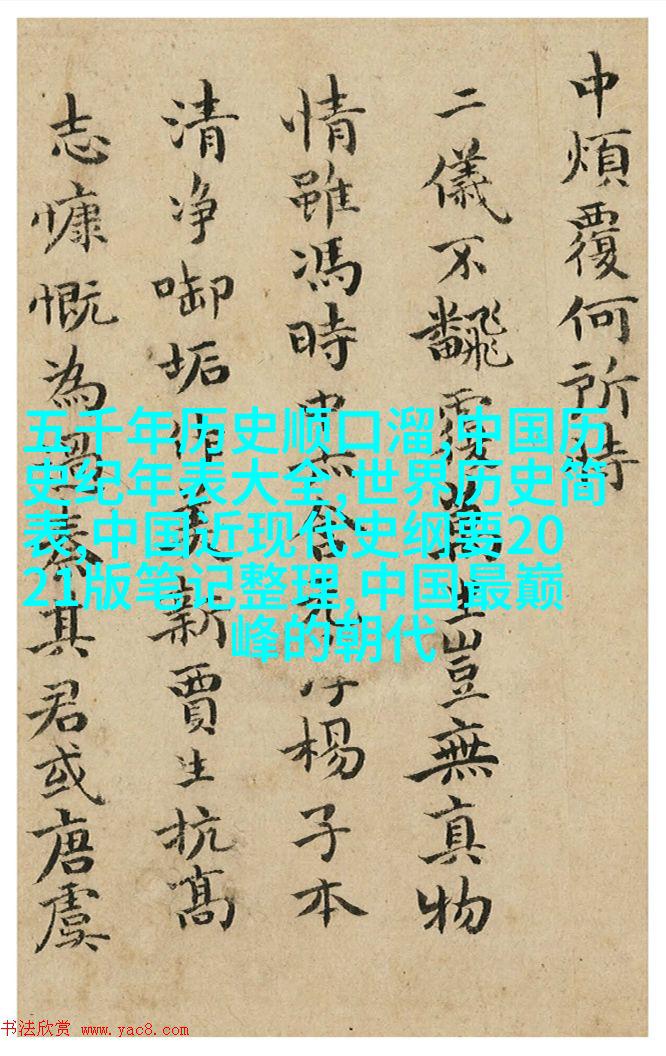 中煩覆何所恃
二儀不飜覆萬生豈無真物
情雖馮時含楊子本
清净啣垢作美新賈生抗髙
志慷慨為過秦其君或唐虞
五千年历史顺口溜,中国历
史纪年表大全,世界历史简
表,中国近现代史纲要20
21版笔记整理,中国最巅
峰的朝代
书法欣赏 www.yac8.com